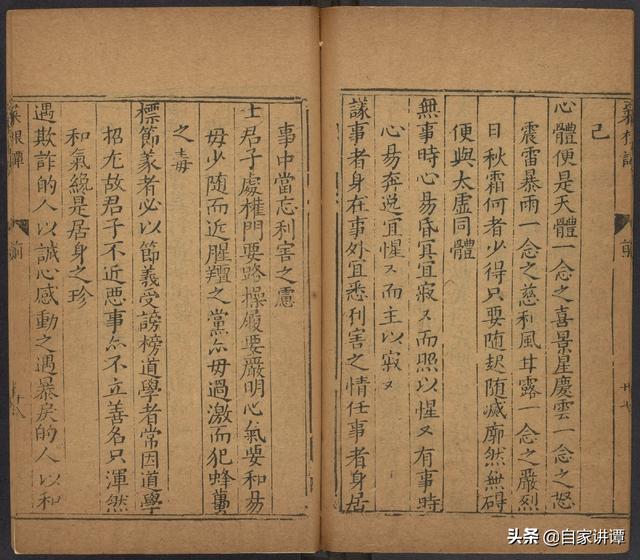 己
心體便是天體一念之喜景星慶雲一念之怒
震雷暴雨一念之慈和風甘露一念之嚴烈
日秋霜何者少得只要随起随滅廓然無碍
便與太虛同體
無事時心易昏冥宜寂〻而照以惺〻有事時
心易奔逸宜惺〻而主以寂〻
議事者身在事外宜悉利害之情任事者身居
事中當忘利害之慮
士君子處權門要路操履要嚴明心氣要和易
毋少随而近腥羶之黨亦毋過激而犯蜂蠆
之毒
標節義者必以節義受謗榜道學者常因道學
招尤故君子不近惡事亦不立善名只渾然
和氣纔是居身之珍
遇欺詐的人以誠心感動之遇暴戾的人以和
菜根譚 前
头条 @自家讲谭